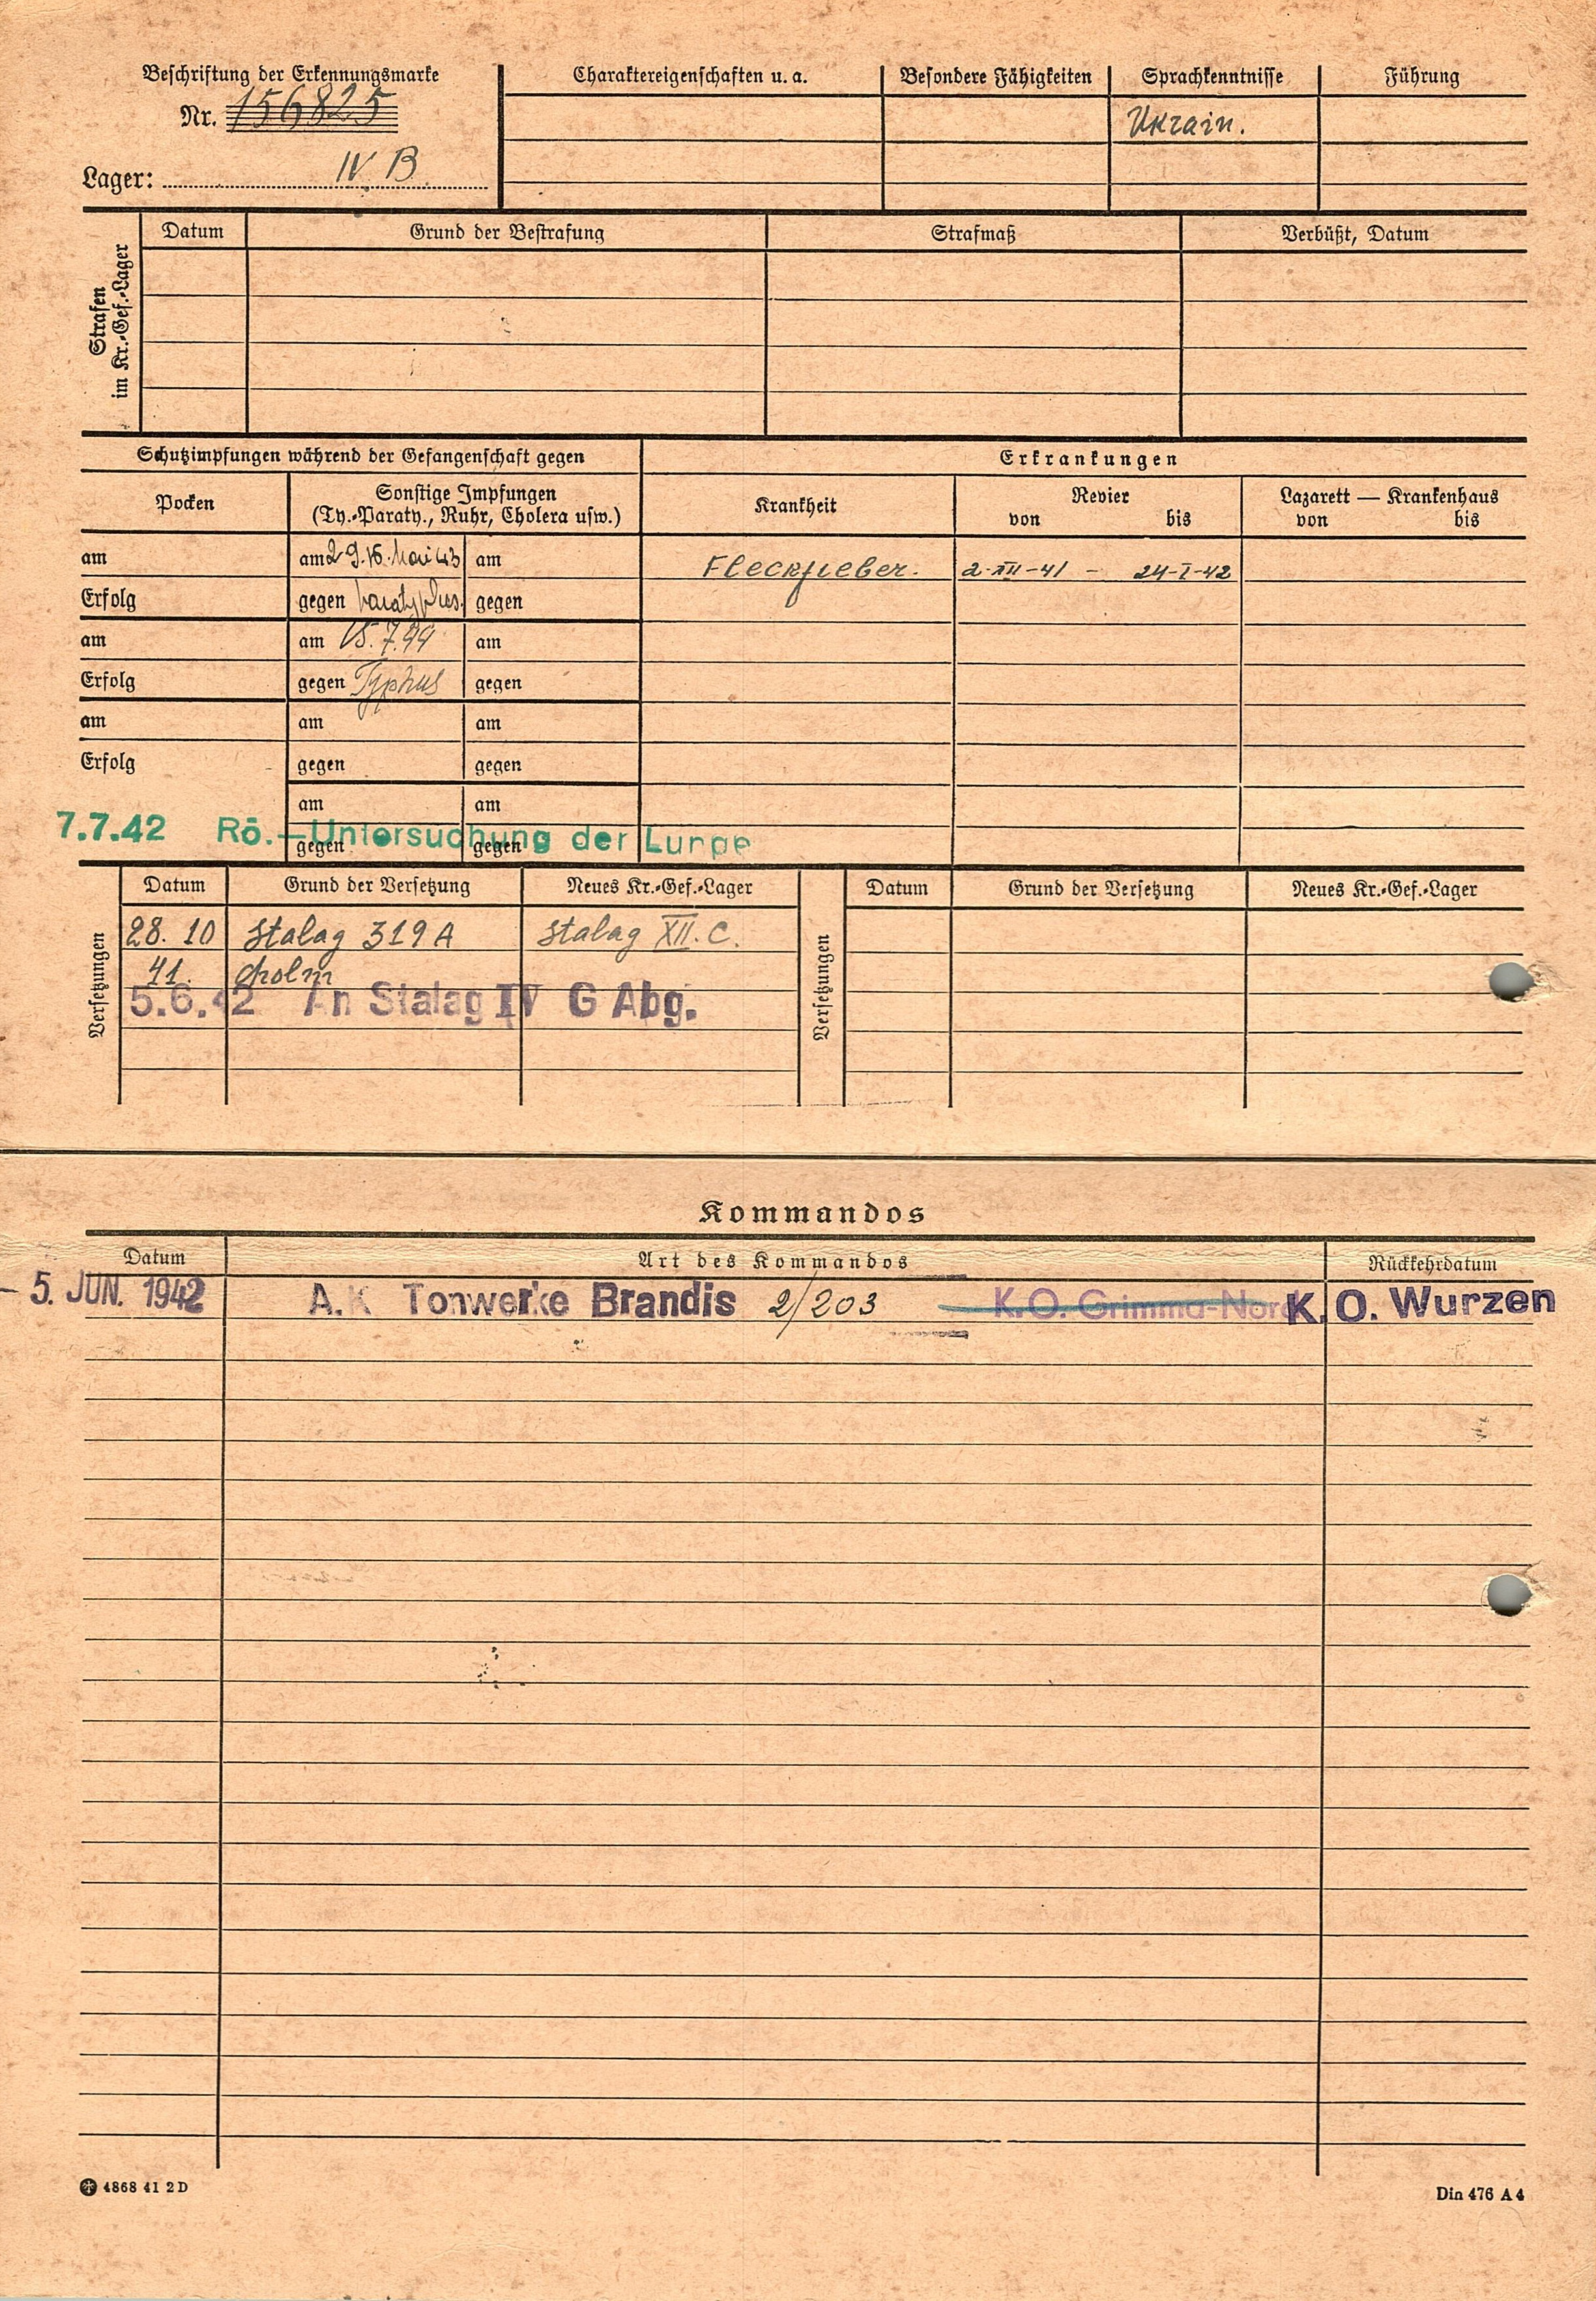 Beschriftung der Erkennungsmarke
Nr. 156825
Lager: IV B
Charaktereigenschaften u. a.
Besondere Fähigkeiten
Sprachkenntnisse
Führung
Ukrain.
Strafen
im Kr.-Gef.-Lager
Datum
Grund der Bestrafung
Strafmaß
Verbüßt, Datum
Schutzimpfungen während der Gefangenschaft gegen
Erkrankungen
Pocken
Sonstige Impfungen
(Ty.-Paraty., Ruhr, Cholera usw.)
Krankheit
Revier
von bis
Lazarett — Krankenhaus
von bis
am
am 29.16. Mai 43
am
Fleckfieber.
2-XII-41 - 24-I-42
Erfolg
gegen Paratyphus.
gegen
am
am 15.7.44
am
Erfolg
gegen Typhus
gegen
am
am
am
Erfolg
gegen
gegen
am
am
7.7.42 Rö.-Untersuchung der Lunge
gegen
gegen
Versetzungen
Datum
Grund der Versetzung
Neues Kr.-Gef.-Lager
Versetzungen
Datum
Grund der Versetzung
Neues Kr.-Gef.-Lager
28. 10 Stalag 319 A Stalag XII. C.
41. Cholm
5.6.42 An Stalag IV G Abg.
Kommandos
Datum
Art des Kommandos
Rückkehrdatum
- 5. JUN. 1942 A.K Tonwerke Brandis 2/203 K.O. Grimma-Nord K.O. Wurzen
4868 41 2 D
Din 476 A 4